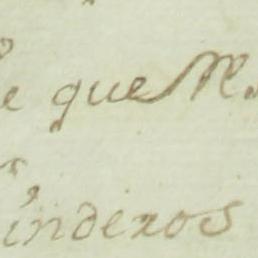 e que M.
indexos